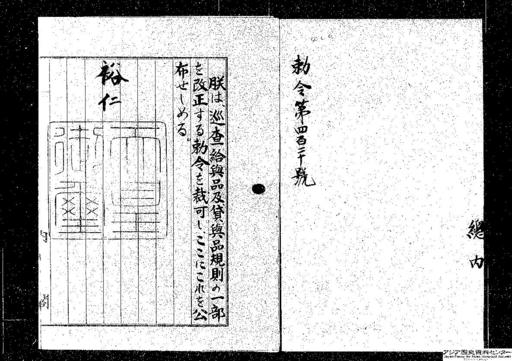 勅令第四百二十號
總内
朕は、巡査給與品及貸與品規則の一部
を改正する勅令を裁可し、ここにこれを公
布せしめる。
裕仁
天皇御璽
内閣
アジア歴史資料センター